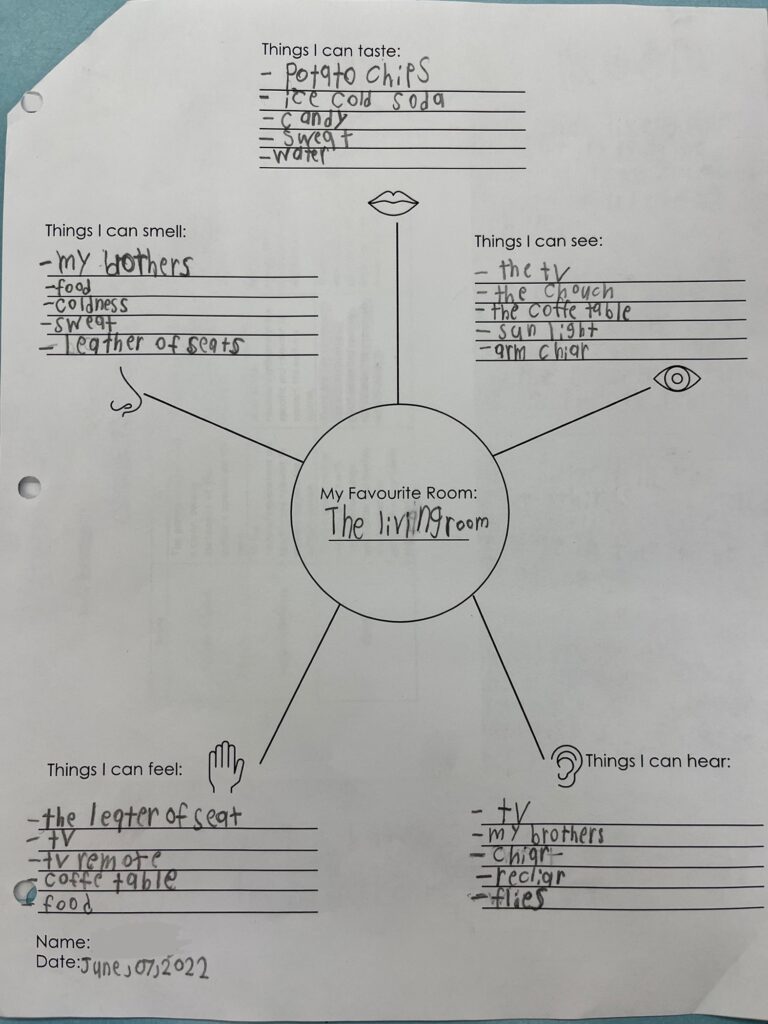 Things I can taste:
- potato chips
- ice cold soda
- candy
- sweat
- water
Things I can smell:
- my brothers
- food
- coldness
- sweat
- leather of seats
Things I can see:
- the tv
- the chouch
- the coffe table
- sun light
- arm chiar
My Favourite Room:
The living room
Things I can feel:
- the leater of seat
- tv
- tv remote
- coffe table
- food
Things I can hear:
- tv
- my brothers
- chiar
- recliar
- flies
Name:
Date: June,07,2022